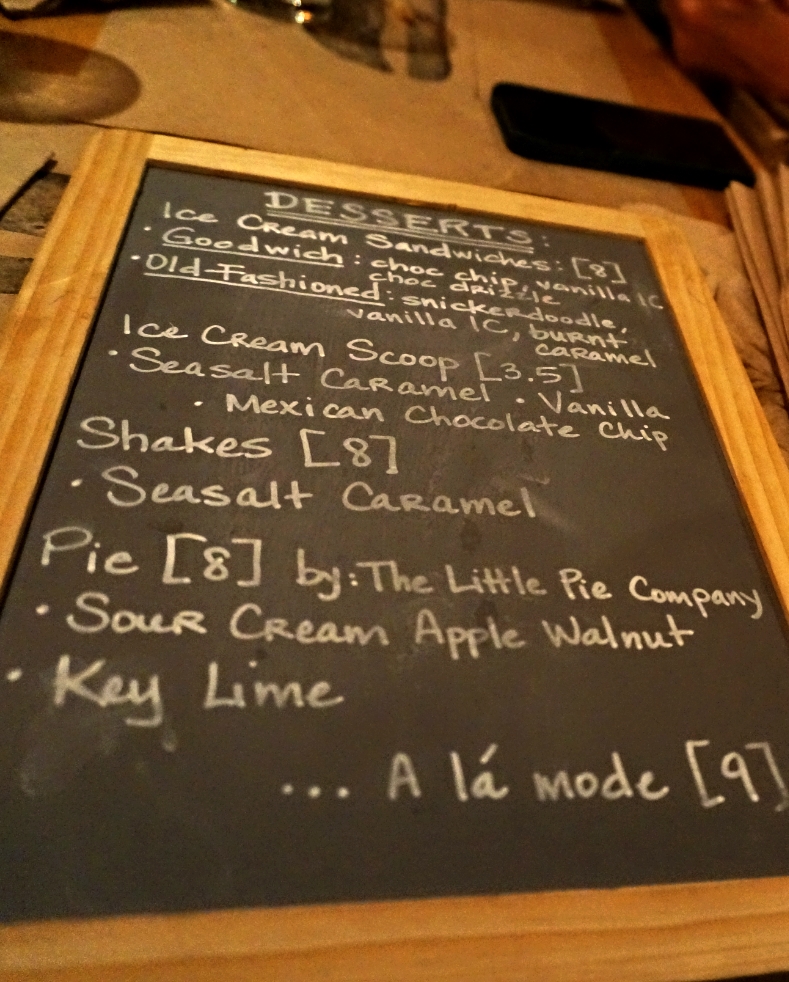 DESSERTS:
Ice Cream Sandwiches: [8]
• Goodwich: choc chip, vanilla IC
choc drizzle
• Old-Fashioned: snickerdoodle,
vanilla IC, burnt
caramel
Ice Cream Scoop [3.5]
• Seasalt Caramel • Vanilla
• Mexican Chocolate Chip
Shakes [8]
• Seasalt Caramel
Pie [8] by: The Little Pie Company
• Sour Cream Apple Walnut
• Key Lime
... A lá mode [9]